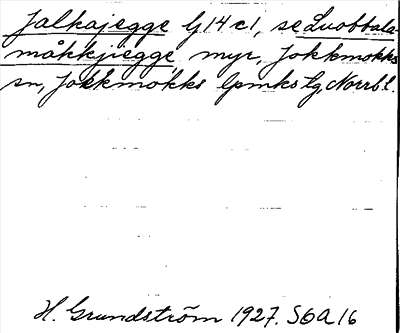 Jalkajegge G 14 c1, se Luobbala-
måhkjiegge, myr, Jokkmokks
sn, Jokkmokks lpmks tg, Norrb.l.
H. Grundström 1927. SOA 16